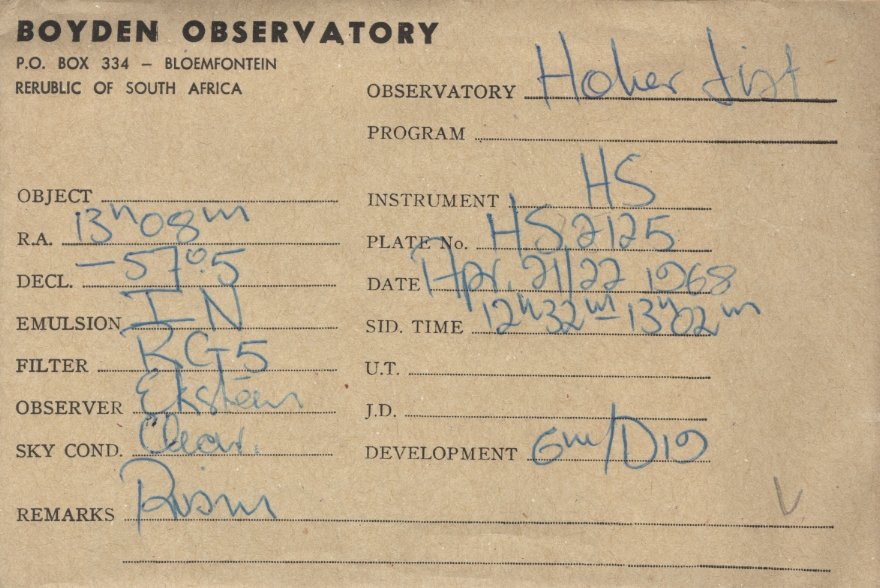 BOYDEN OBSERVATORY
P.O. BOX 334 – BLOEMFONTEIN
RERUBLIC OF SOUTH AFRICA
OBSERVATORY Hoher List
PROGRAM
OBJECT
INSTRUMENT HS
R.A. 13h08m
PLATE No. HS 2125
DECL. –57°.5
DATE Apr. 21/22 1968
EMULSION I N
SID. TIME 12h32m – 13h02m
FILTER RG5
U.T.
OBSERVER Ekstein
J.D.
SKY COND. Clear.
DEVELOPMENT 6m/D19
REMARKS Prism
V